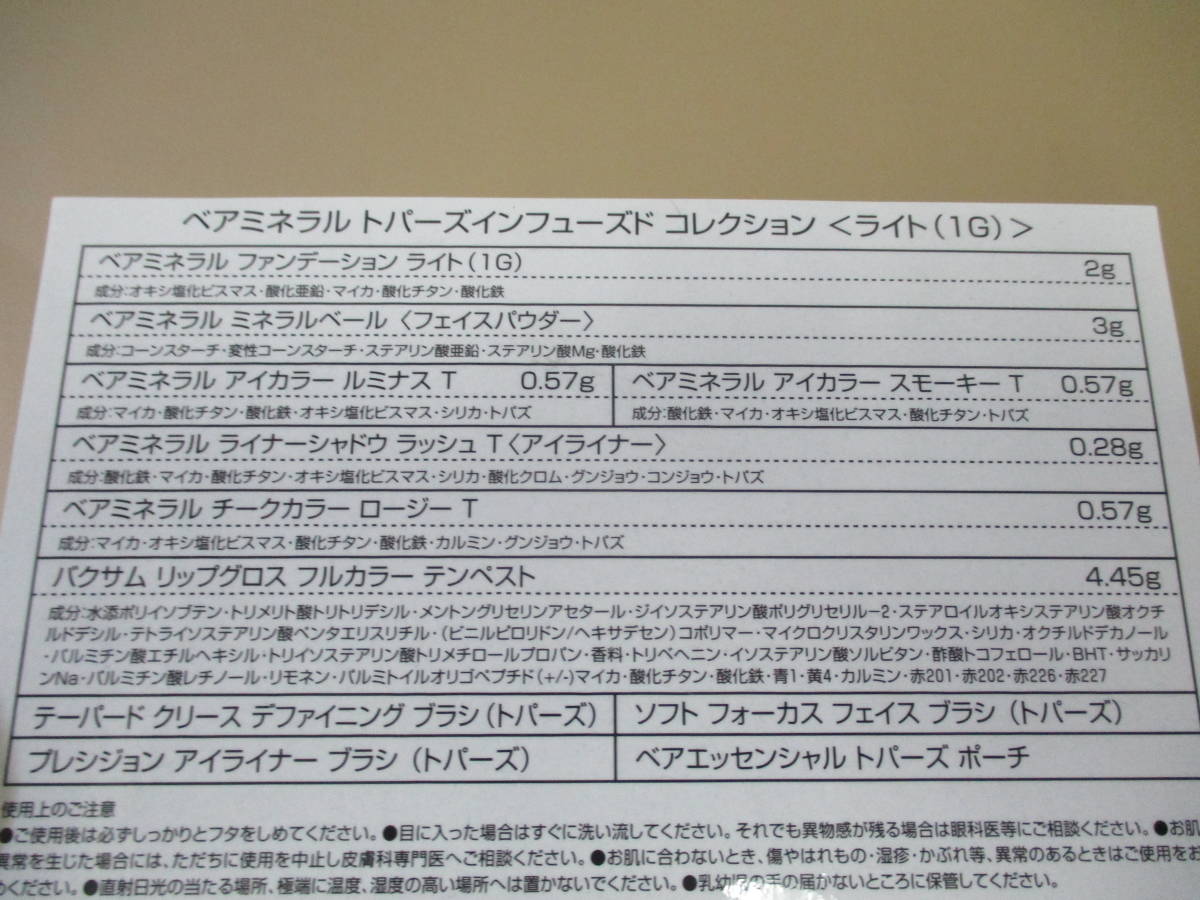 ベアミネラル トパーズインフューズド コレクション <ライト(1G)>
ベアミネラル ファンデーション ライト(1G) 2g
成分:オキシ塩化ビスマス・酸化亜鉛・マイカ・酸化チタン・酸化鉄
ベアミネラル ミネラルベール〈フェイスパウダー〉 3g
成分:コーンスターチ・変性コーンスターチ・ステアリン酸亜鉛・ステアリン酸Mg・酸化鉄
ベアミネラル アイカラー ルミナス T 0.57g
成分:マイカ・酸化チタン・酸化鉄・オキシ塩化ビスマス・シリカ・トパズ
ベアミネラル アイカラー スモーキー T 0.57g
成分:酸化鉄・マイカ・オキシ塩化ビスマス・酸化チタン・トパズ
ベアミネラル ライナーシャドウ ラッシュ T〈アイライナー〉 0.28g
成分:酸化鉄・マイカ・酸化チタン・オキシ塩化ビスマス・シリカ・酸化クロム・グンジョウ・コンジョウ・トパズ
ベアミネラル チークカラー ロージー T 0.57g
成分:マイカ・オキシ塩化ビスマス・酸化チタン・酸化鉄・カルミン・グンジョウ・トパズ
バクサム リップグロス フルカラー テンペスト 4.45g
成分:水添ポリイソブテン・トリメリト酸トリトリデシル・メントングリセリンアセタール・ジイソステアリン酸ポリグリセリル-2・ステアロイルオキシステアリン酸オクチ
ルドデシル・テトライソステアリン酸ペンタエリスリチル・(ビニルピロリドン/ヘキサデセン)コポリマー・マイクロクリスタリンワックス・シリカ・オクチルドデカノール
・パルミチン酸エチルヘキシル・トリイソステアリン酸トリメチロールプロパン・香料・トリベヘニン・イソステアリン酸ソルビタン・酢酸トコフェロール・BHT・サッカリ
ンNa・パルミチン酸レチノール・リモネン・パルミトイルオリゴペプチド(+/-)マイカ・酸化チタン・酸化鉄・青1・黄4・カルミン・赤201・赤202・赤226・赤227
テーパード クリース デファイニング ブラシ(トパーズ)
ソフト フォーカス フェイス ブラシ (トパーズ)
プレシジョン アイライナー ブラシ (トパーズ)
ベアエッセンシャル トパーズ ポーチ
使用上のご注意
●ご使用後は必ずしっかりとフタをしめてください。●目に入った場合はすぐに洗い流してください。それでも異物感が残る場合は眼科医等にご相談ください。●お肌
異常を生じた場合には、ただちに使用を中止し皮膚科専門医へご相談ください。●お肌に合わないとき、傷やはれもの・湿疹・かぶれ等、異常のあるときはご使用をお
めください。●直射日光の当たる場所、極端に温度、湿度の高い場所へは置かないでください。●乳幼児の手の届かないところに保管してください。